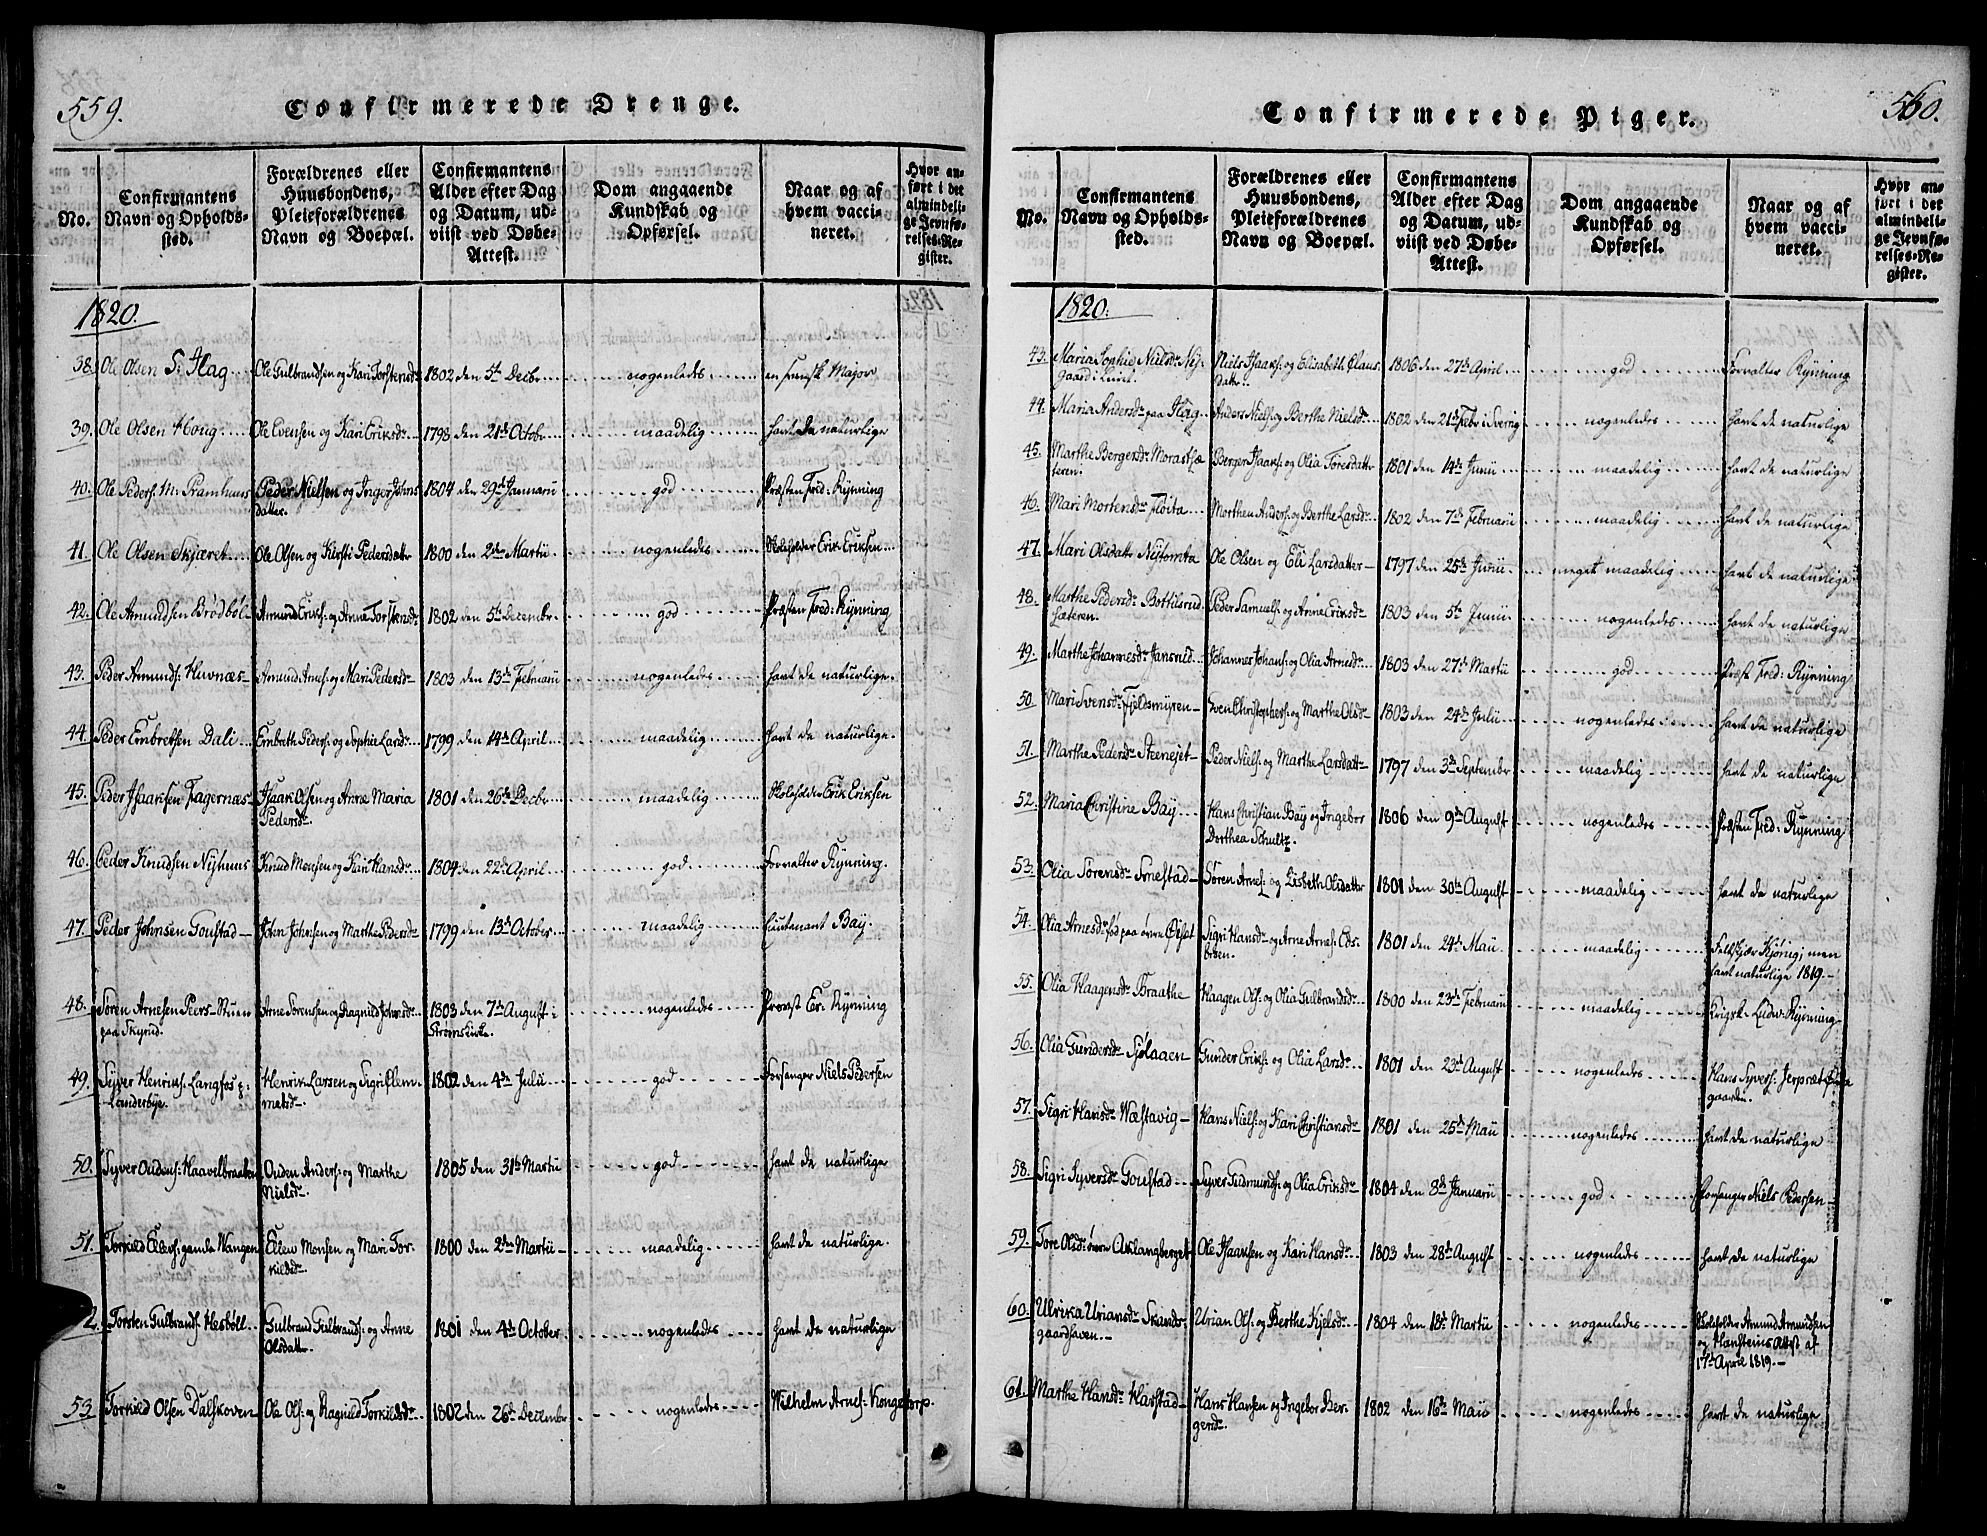 559.
Confirmerede Drenge.
No.
Confirmantens Navn og Opholds-sted.
Forældrenes eller Huusbondens, Pleieforældrenes Navn og Boepæl.
Confirmantens Alder efter Dag og Datum, ud-viist ved Døbe-Attest.
Dom angaaende Kundskab og Opførsel.
Naar og af hvem vacci-neret.
Hvor an-ført i det almindeli-ge Jevnfø-relses-Re-gister.
1820.
38. Ole Olsen S. Flag Ole Gulbrandsen og Kari Torstensdr 1802 den 5te Decbr nogenledes en svensk Major
39. Ole Olsen Houg Ole Evensen og Kari Eriksdr 1798 den 21de Octobr maadelig havt de naturlige
40. Ole Peders: M: Pramhuus Peder Nielsen og Inger Johns 1804 den 29de Januarii god Præsten Fred: Rynning
datter.
41. Ole Olsen Skjæret Ole Olsen og Kirsti Pedersdattr 1800 den 2den Martii nogenledes Skoleholder Erik Eriksen
42. Ole Amundsen Brødbøl Amund Eriks: og Anne Torstensdr 1802 den 5te Decembr god Præsten Fred: Rynning
43. Peder Amunds: Huvnæs Amund Arnes: og Mari Pedersdr 1803 den 13de Februarii nogenledes havt de naturlige.
44. Peder Embretsen Dali Embreth Peders: og Sophie Larsdr 1799 den 14de April maadelig havt de naturlige.
45. Peder Isaaksen Fagernæs Isaak Olsen og Anne Maria 1801 den 26de Decbr maadelig Skoleholder Erik Eriksen
Pedersdr.
46. Peder Knudsen Nyhuus Knud Monsen og Kari Hansdr 1804 den 22de April god Forvalter Rynning.
47. Peder Johnsen Goustad John Johnsen og Marthe Persdr 1799 den 13de October maadelig Lieutenant Bay.
48. Sören Arnesen Peers-Stuen Arne Sörensen og Ragnild Johnsdr 1803 den 7de August i nogenledes Provst Er. Rynning
paa Skynd. Strømskirke
49. Syver Henriks: Langfos p: Henrik Larsen og Sigri Clem 1802 den 4de Julii god Forsanger Niels Pedersen
Lunderbye. metsdr.
50. Syver Oudens: Haavelbraaten Ouden Anders: og Marthe 1805 den 31te Martii god havt de naturlige
Nielsdr.
51. Torkild Ellevs: gamle Wangen Ellew Monsen og Mari Tor- 1800 den 2den Martii maadelig havt de naturlige.
kildsdr
2. Torsten Gulbrands: Hesböll Gulbrand Gulbrands: og Anne 1801 den 4de October nogenledes havt de naturlige
Olsdattr
53. Torkild Olsen Dalskoven Ole Ols: og Ragnild Torkildsdr 1802 den 26de Decembr nogenledes Wilhelm Arnes: Kongetorp.
560.
Confirmerede Piger.
No.
Confirmantens Navn og Opholds-sted.
Forældrenes eller Huusbondens, Pleieforældrenes Navn og Boepæl.
Confirmantens Alder efter Dag og Datum, ud-viist ved Døbe-Attest.
Dom angaaende Kundskab og Opførsel.
Naar og af hvem vacci-neret.
Hvor an-ført i det almindeli-ge Jevnfø-relses-Re-gister.
1820.
43. Maria Sophie Nielsdr Ny- Niels Isaaks: og Elisabeth Claus 1806 den 27de April god Forvalter Rynning
gaard i datter.
44. Maria Andersdr paa Flag Anders Niels: og Berthe Nielsdr 1802 den 21de Febr i Sverig nogenledes havt de naturlige
45. Marthe Bergersdr Morastsæ Berger Isaaks: og Olia Toresdattr 1801 den 14de Junii maadelig havt de naturlige
teren.
46. Mari Mortensdr Flöita Morthen Anders: og Berthe Larsdr 1802 den 7de Februarii maadelig havt de naturlige
47. Mari Olsdattr Nytomta Ole Olsen og Eli Larsdatter 1797 den 25de Junii meget maadelig havt de naturlige
48. Marthe Pedersdr Bottilsrud Peder Samuels: og Anne Eriksdr 1803 den 5te Junii nogenledes havt de naturlige
sæteren.
49. Marthe Johannesdr Jansrud Johannes Johans: og Olia Arnesdr 1803 den 27de Martii god Præst Fred: Rynning
50. Mari Svensdr Fjeldsmyren Sven Christophers: og Marthe Olsdr 1803 den 24de Julii nogenledes havt de naturlige
51. Marthe Pedersdr Steenejet Peder Niels: og Marthe Larsdattr 1797 den 3de Septembr maadelig havt de naturlige
52. Maria Christine Bay Hans Christian Bay og Ingebor 1806 den 9de August nogenledes Præsten Fred: Rynning
Dorthea Schultz.
53. Olia Sörensdr Arnestad Sören Arnes: og Lisbeth Olsdattr 1801 den 30te August maadelig havt de naturlige
54. Olia Arnesdr föd paa övre Öiset Sigri Hansdr og Arne Arnes: Ods- 1801 den 24de Maii maadelig Feltskjær Kjönig; men
broen. havt naturlige 1819.
55. Olia Haagensdr Braathe Haagen Ols: og Olia Gulbrandsdr 1800 den 23de Februarii maadelig Krigsk. Ludv: Rynning
56. Olia Gundersdr Sjölaaen Gunder Eriks: og Olia Larsdr 1801 den 23de August nogenledes Hans Syvers:
gaarden.
57. Sigri Hansdr Wæstavig Hans Niels: og Kari Christiansdr 1801 den 25de Maii nogenledes havt de naturlige
58. Sigri Syversdr Goustad Syver Gudmunds: og Olia Eriksdr 1804 den 8de Januarii god Forsanger Niels Pedersen
59. Tore Olsdr övre Aklangberget Ole Isaaksen og Kari Hansdr 1803 den 28de August nogenledes havt de naturlige
60. Ulrika Uriansdr Skands- Urian Ols: og Berthe Kjelsdr 1804 den 18de Martii nogenledes Skoleholder Amund Amundsen
gaardhaven. og Hansteins Attest af
17de April 1819.
61. Marthe Hansdr Harstad Hans Hansen og Ingebor Ber- 1802 den 16de Maii nogenledes havt de naturlige
gersdr.